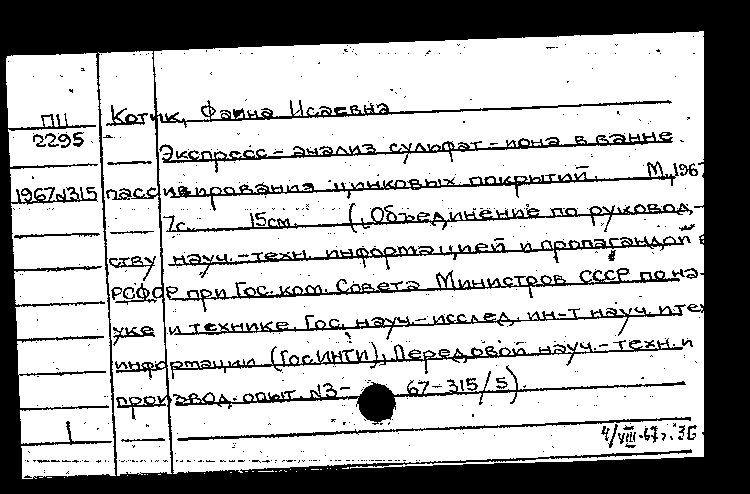 ПШ Котик, Фаина Исаевна
2295
Экспресс-анализ сульфат-иона в ванне
1967 N315 пассивирования цинковых покрытий. М., 1967
7с. 15см. (Объединение по руковод-
ству науч.-техн. информацией и пропагандой в
РСФСР при Гос. ком. Совета Министров СССР по на-
уке и технике. Гос. науч.-исслед. ин-т науч. и тех
информации (ГосИНТИ), Передовой науч.-техн. и
производ. опыт. N3- 67-315/5).
1
4/VIII-67г.